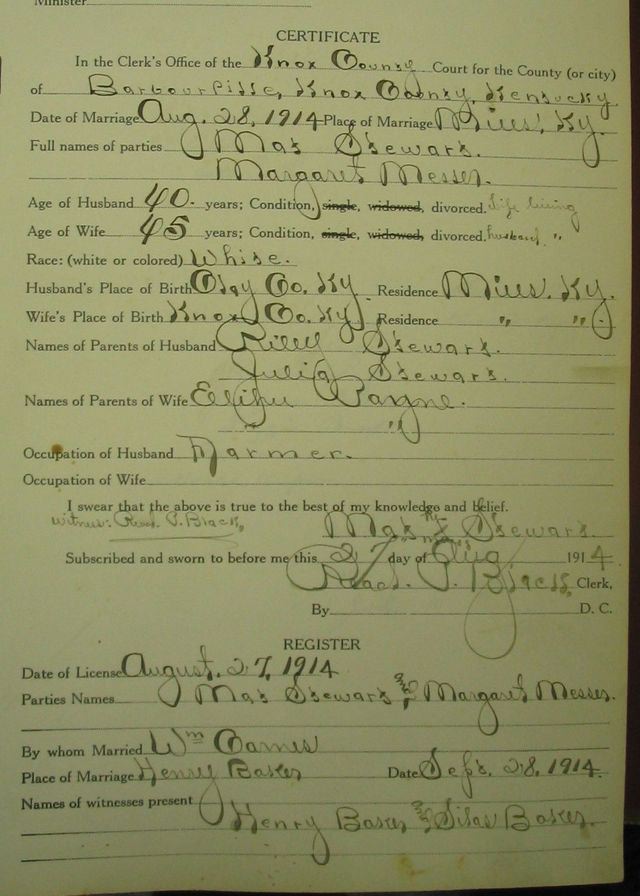 Minister
CERTIFICATE
In the Clerk's Office of the Knox County Court for the County (or city)
of Barbourville, Knox County, Kentucky.
Date of Marriage Aug. 28, 1914 Place of Marriage Mills, Ky.
Full names of parties Mat Stewart.
Margaret Messer.
Age of Husband 40. years; Condition, single, widowed, divorced. Wife living
Age of Wife 45 years; Condition, single, widowed, divorced. husband "
Race: (white or colored) White.
Husband's Place of Birth Clay Co. Ky. Residence Mills, Ky.
Wife's Place of Birth Knox Co. Ky. Residence " "
Names of Parents of Husband Riley Stewart.
Julia Stewart.
Names of Parents of Wife Elihu Payne.
" "
Occupation of Husband Farmer.
Occupation of Wife
I swear that the above is true to the best of my knowledge and belief.
Witness: Read P. Black,
Mat his X mark Stewart.
Subscribed and sworn to before me this 27 day of Aug 1914
Read P. Black, Clerk,
By D. C.
REGISTER
Date of License August. 27, 1914
Parties Names Mat Stewart and Margaret Messer.
By whom Married Wm
Place of Marriage Henry Baker Date Sept. 28, 1914.
Names of witnesses present
Henry Baker and Silas Baker.